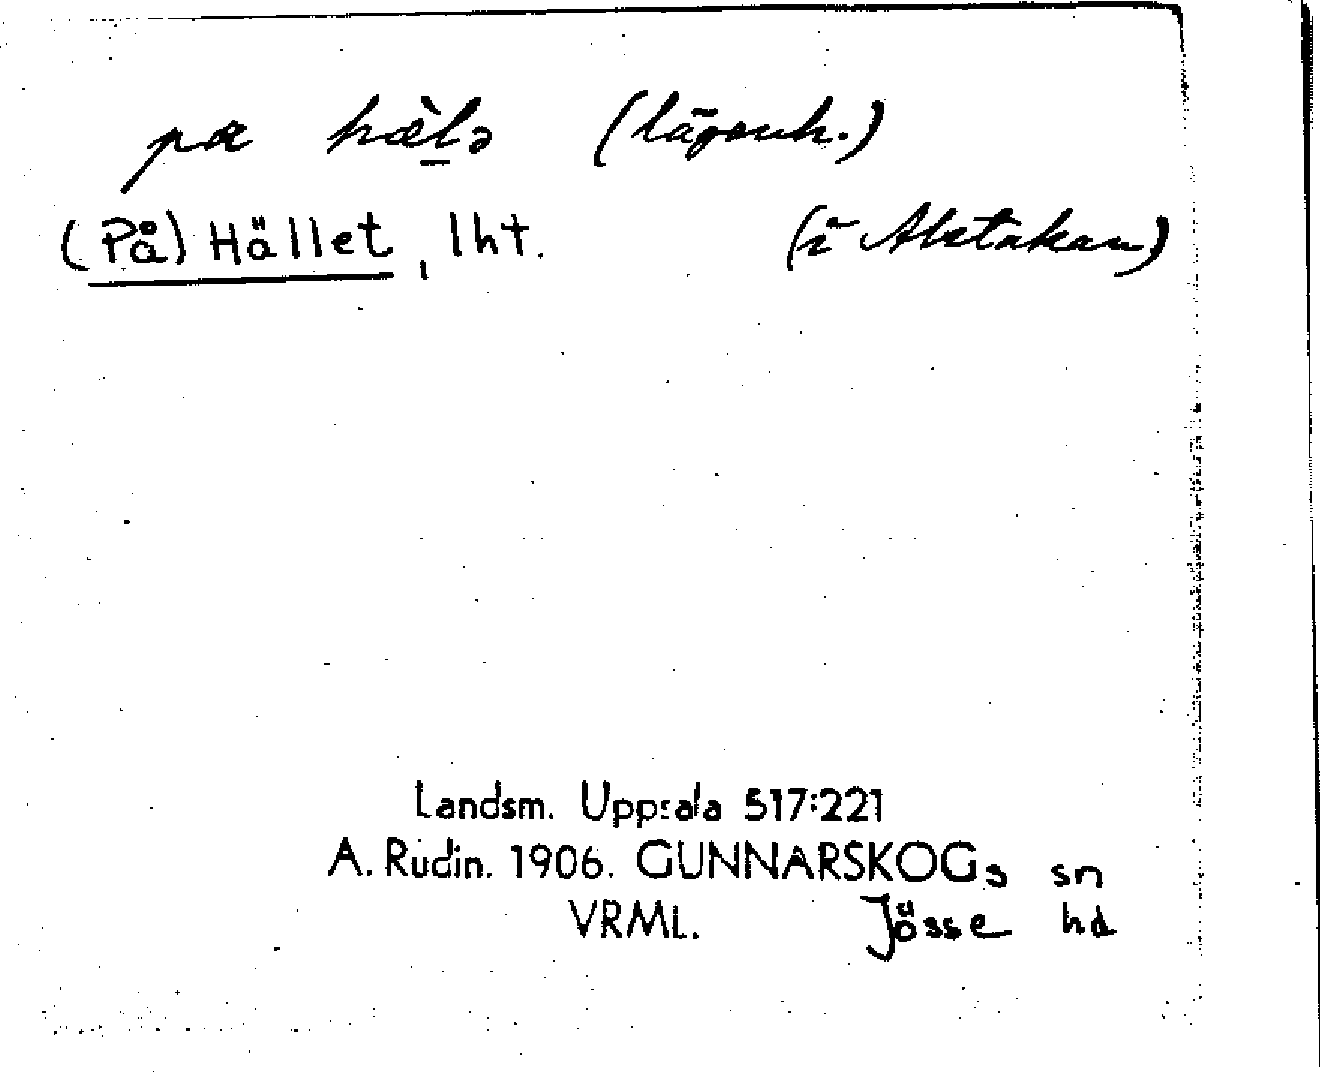 pa hæ̀l̠ə (lägenh.)
(På) Hället, lht. (i Alstakan)
Landsm. Uppsala 517:221
A. Rudin. 1906. GUNNARSKOGs sn
VRML. Jösse hd